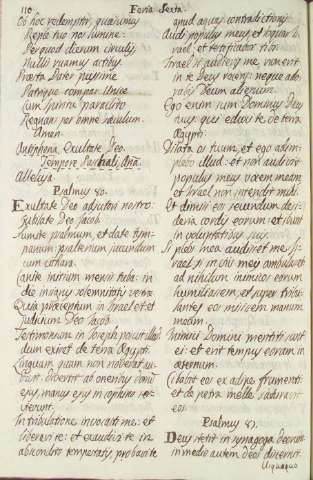 110 Feria Sexta.
Ob hoc redemptor, quæsumus
Reple tuo nos lumine
Per quod dierum circulis
Nullis ruamus actibus
Præsta Pater piissime
Patrique compar Unice
Cum spiritu paraclito
Regnans per omne sæculum.
Amen.
Antiphona. Exultate Deo.
Tempore Paschali, Ana.
Alleluya.
Psalmus 80.
Exultate Deo adjutori nostro:
jubilate Deo Jacob.
Sumite psalmum, et date tym-
panum: psalterium jucundum
cum cithara.
Canite initium mensis tuba: in
die insigni solemnitatis vestræ
Quia præceptum in Israel est: et
judicium Deo Jacob.
Testimonium in Joseph posuit illud
dum exiret de terra Ægypti:
linguam quam non noverat au-
divit. Divertit ab oneribus dorsum
ejus, manus ejus in cophino ser-
vierunt.
In tribulatione invocasti me: et
liberavi te: et exaudivi te in
abscondito tempestatis, probavi te
apud aquas contradictionis.
Audi populus meus, et contestabor
Israel, si audieris me, non erit
in te Deus recens: neque ado-
rabis Deum alienum.
Ego enim sum Dominus Deus
tuus qui eduxi te de terra
Ægypti:
Dilata os tuum, et ego adim-
plebo illud: et non audivit
populus meus vocem meam:
et Israel non intendit mihi.
Et dimisi eos secundum desi-
deria cordis eorum: et ibunt
in
Si populus meus audisset me: Is-
rael si in viis meis ambulasset
ad nihilum inimicos eorum
humiliassem, et super tribu-
lantes eos misissem manum
meam.
Inimici Domini mentiti sunt
ei: et erit tempus eorum in
æternum.
Cibavit eos ex adipe frumenti:
et de petra melle saturavit
eos.
Psalmus 81.
Deus stetit in synagoga deorum:
in medio autem deos dijudicat.
Usquequo